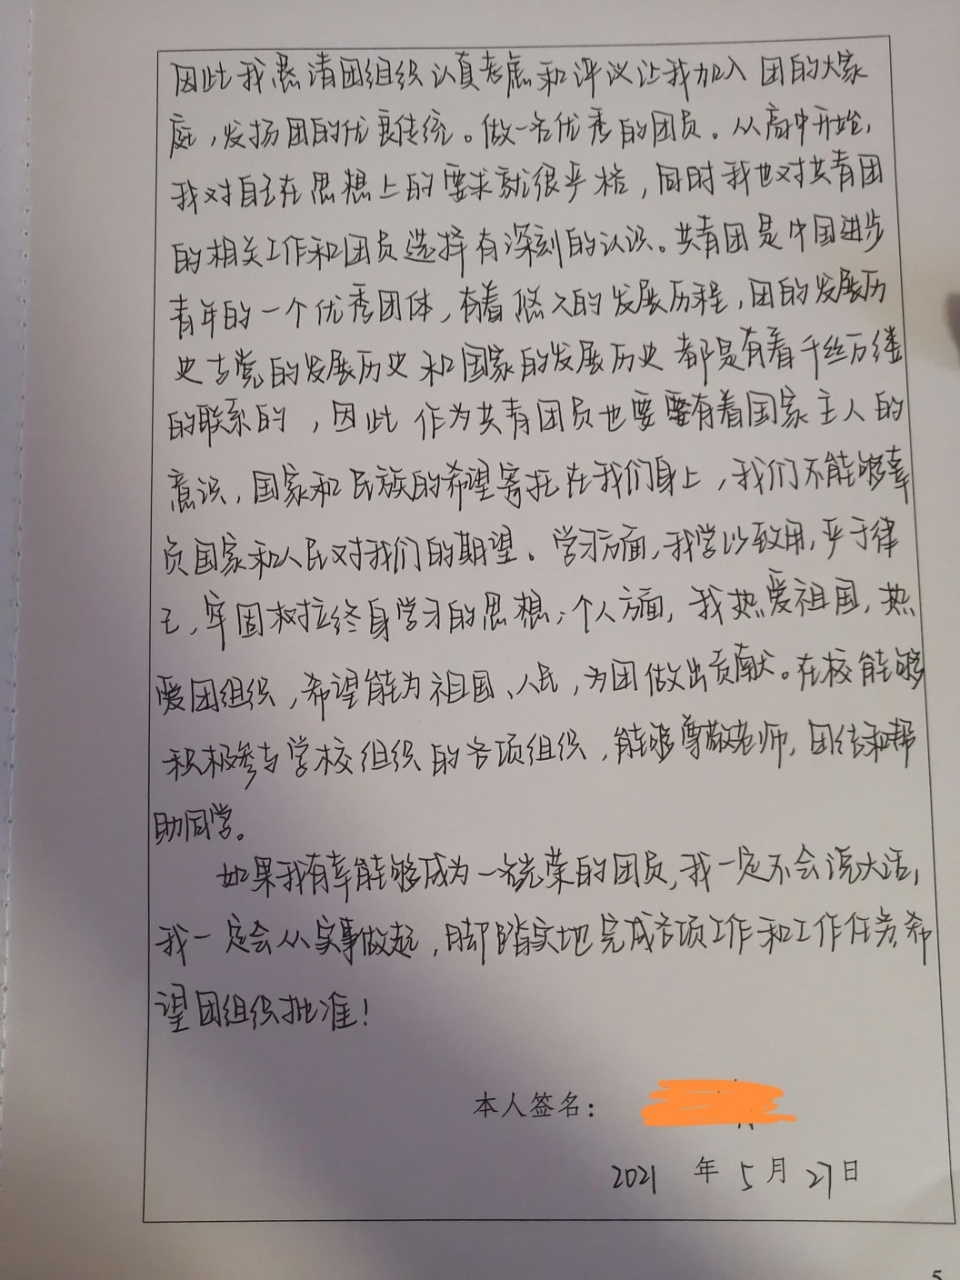 因此我恳请团组织认真考虑和评议让我加入团的大家
庭，发扬团的优良传统。做一名优秀的团员。从高中开始，
我对自己在思想上的要求就很严格，同时我也对共青团
的相关工作和团员选择有深刻的认识。共青团是中国进步
青年的一个优秀团体，有着悠久的发展历程，团的发展历
史与党的发展历史和国家的发展历史都是有着千丝万缕
的联系的，因此作为共青团员也要要有着国家主人的
意识，国家和民族的希望寄托在我们身上，我们不能够辜
负国家和人民对我们的期望。学习方面，我学以致用，严于律
己，牢固树立终身学习的思想；个人方面，我热爱祖国，热
爱团组织，希望能为祖国、人民，为团做出贡献。在校能够
积极参与学校组织的各项组织，能够尊敬老师，团结和帮
助同学。
如果我有幸能够成为一名光荣的团员，我一定不会说大话，
我一定会从实事做起，脚踏实地完成各项工作和工作任务，希
望团组织批准！
本人签名：
2021 年 5 月 27 日
5